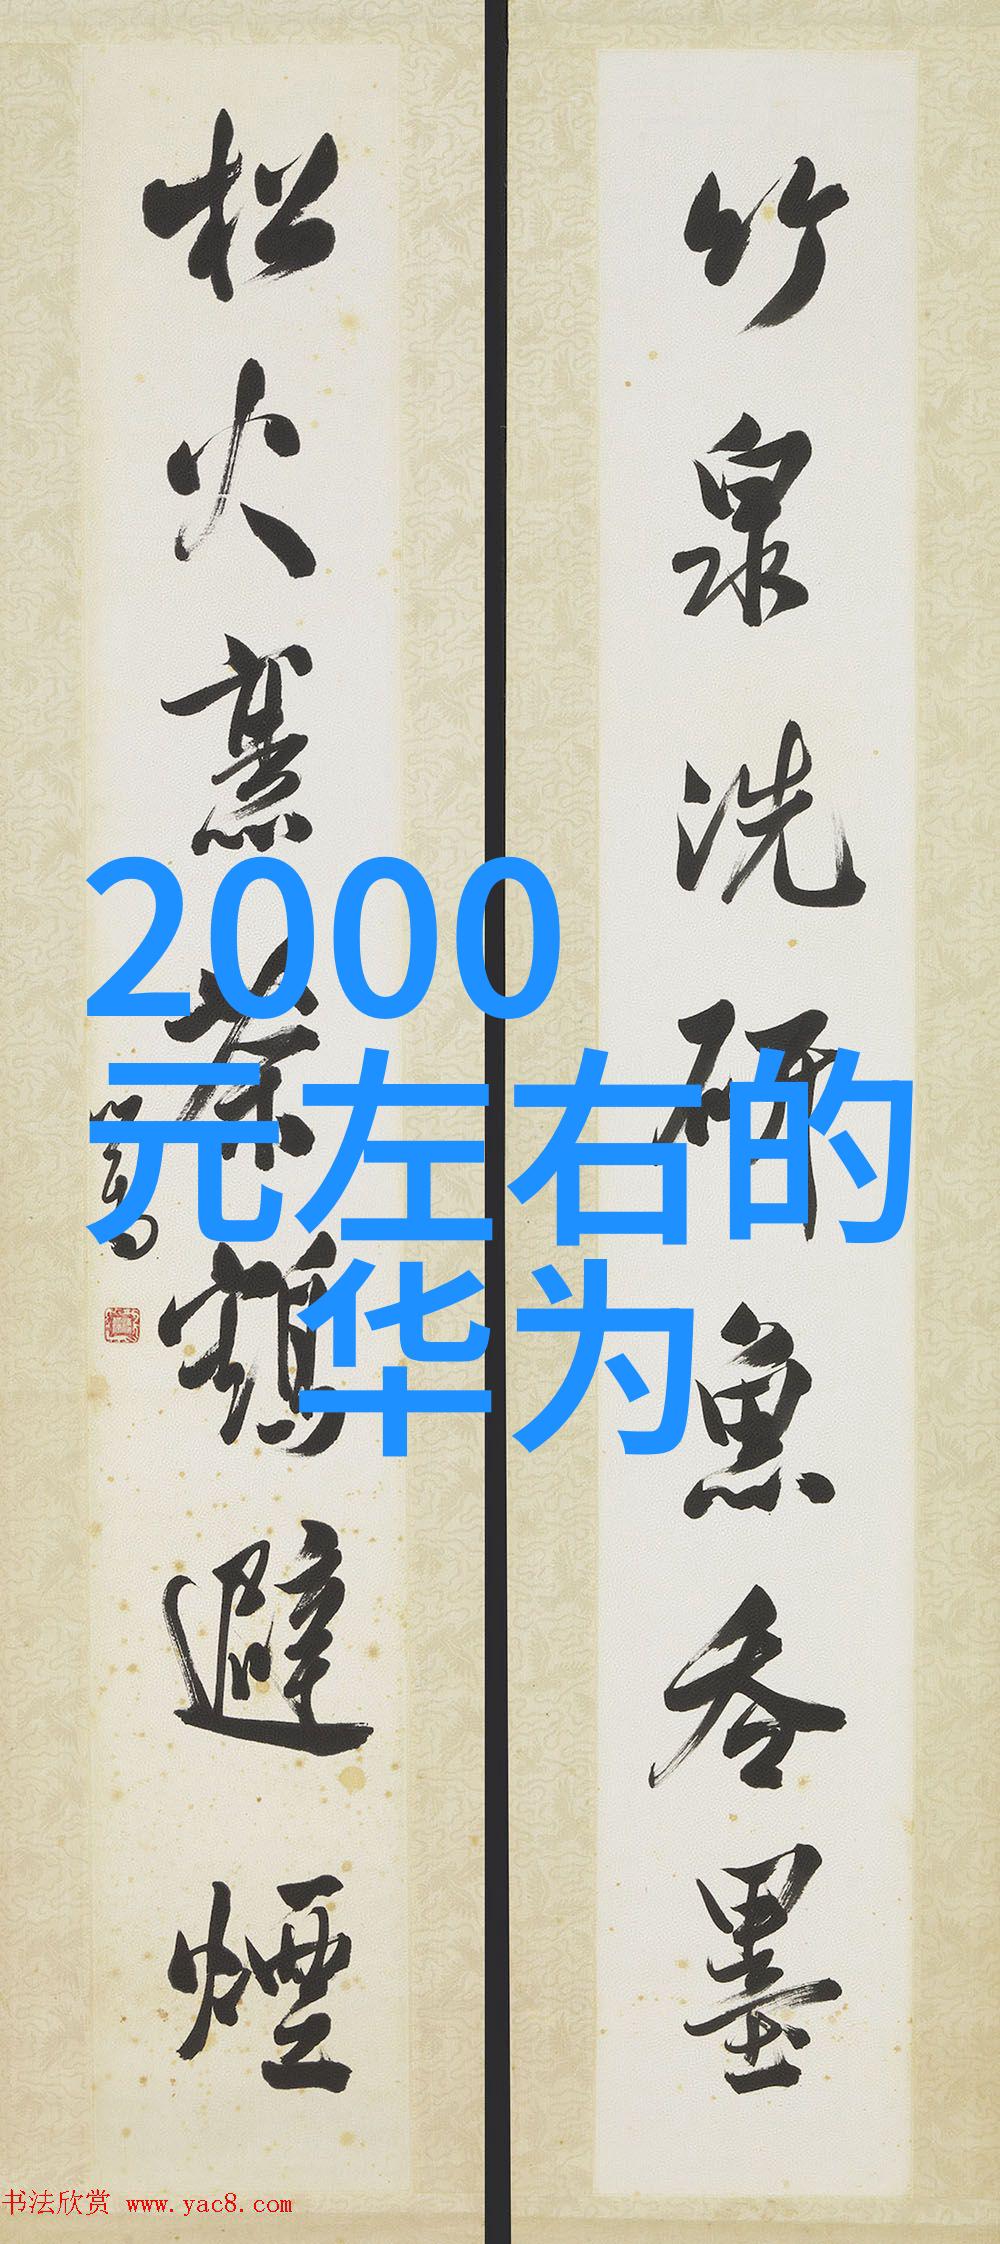 竹泉洗研魚吞墨
松火熏茶鶴避煙
2000
元左右的
华为
书法欣赏 www.yac8.com